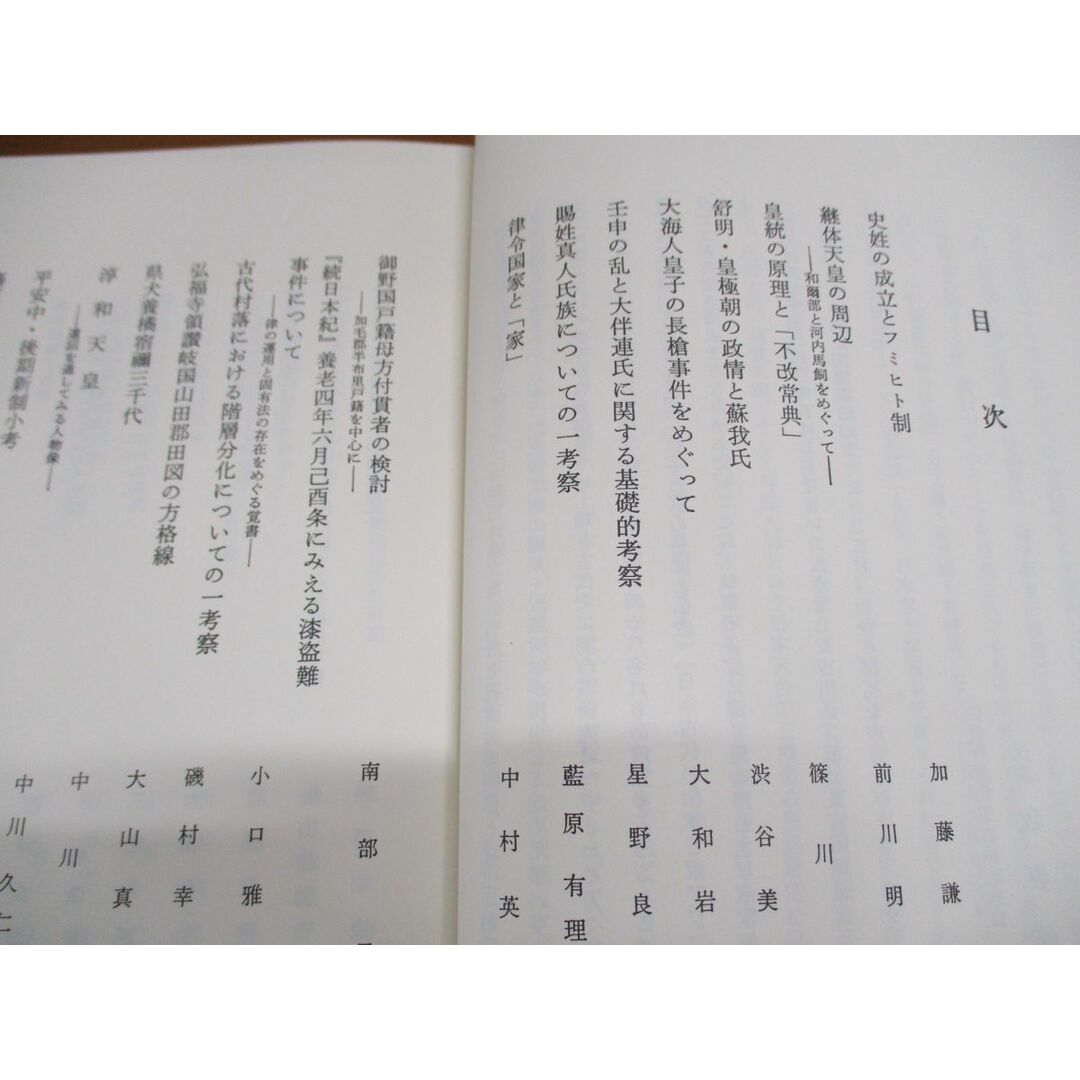 目次
史姓の成立とフミヒト制
加藤謙
継体天皇の周辺
――和爾部と河内馬飼をめぐって――
前川明
皇統の原理と「不改常典」
篠川
舒明・皇極朝の政情と蘇我氏
渋谷美
大海人皇子の長槍事件をめぐって
大和岩
壬申の乱と大伴連氏に関する基礎的考察
星野良
賜姓真人氏族についての一考察
藍原有理
律令国家と「家」
中村英
御野国戸籍母方付貫者の検討
――加毛郡半布里戸籍を中心に――
南部
『続日本紀』養老四年六月己酉条にみえる漆盗難
事件について
――律の運用と固有法の存在をめぐる覚書――
小口雅
古代村落における階層分化についての一考察
磯村幸
弘福寺領讃岐国山田郡田図の方格線
大山真
県犬養橘宿禰三千代
中川
淳和天皇
――遺詔を通してみる人物像――
中川久仁
平安中・後期新制小考